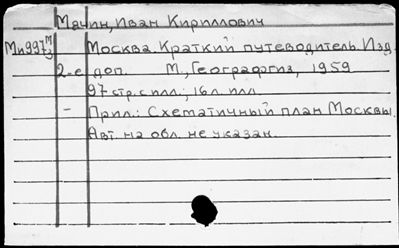 Мячин, Иван Кириллович
Ми997 М/J Москва. Краткий путеводитель. Изд.
2-е доп. М., Географгиз, 1959
97 стр. с илл.; 16 л. илл.
– Прил.: Схематичный план Москвы.
Авт. на обл. не указан.